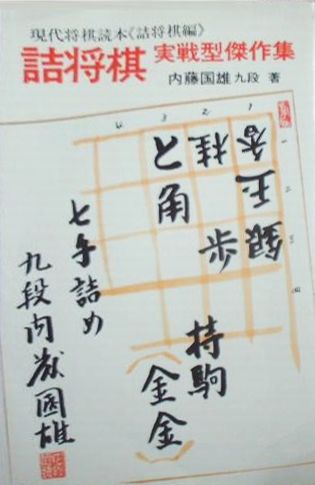 現代将棋読本《詰将棋編》
詰将棋 実戦型傑作集
内藤国雄九段 著
4 3 2 1
と 桂 香 一
角 玉 二
歩 銀 三
四
持駒
(金金)
七手詰め
九段内藤國雄